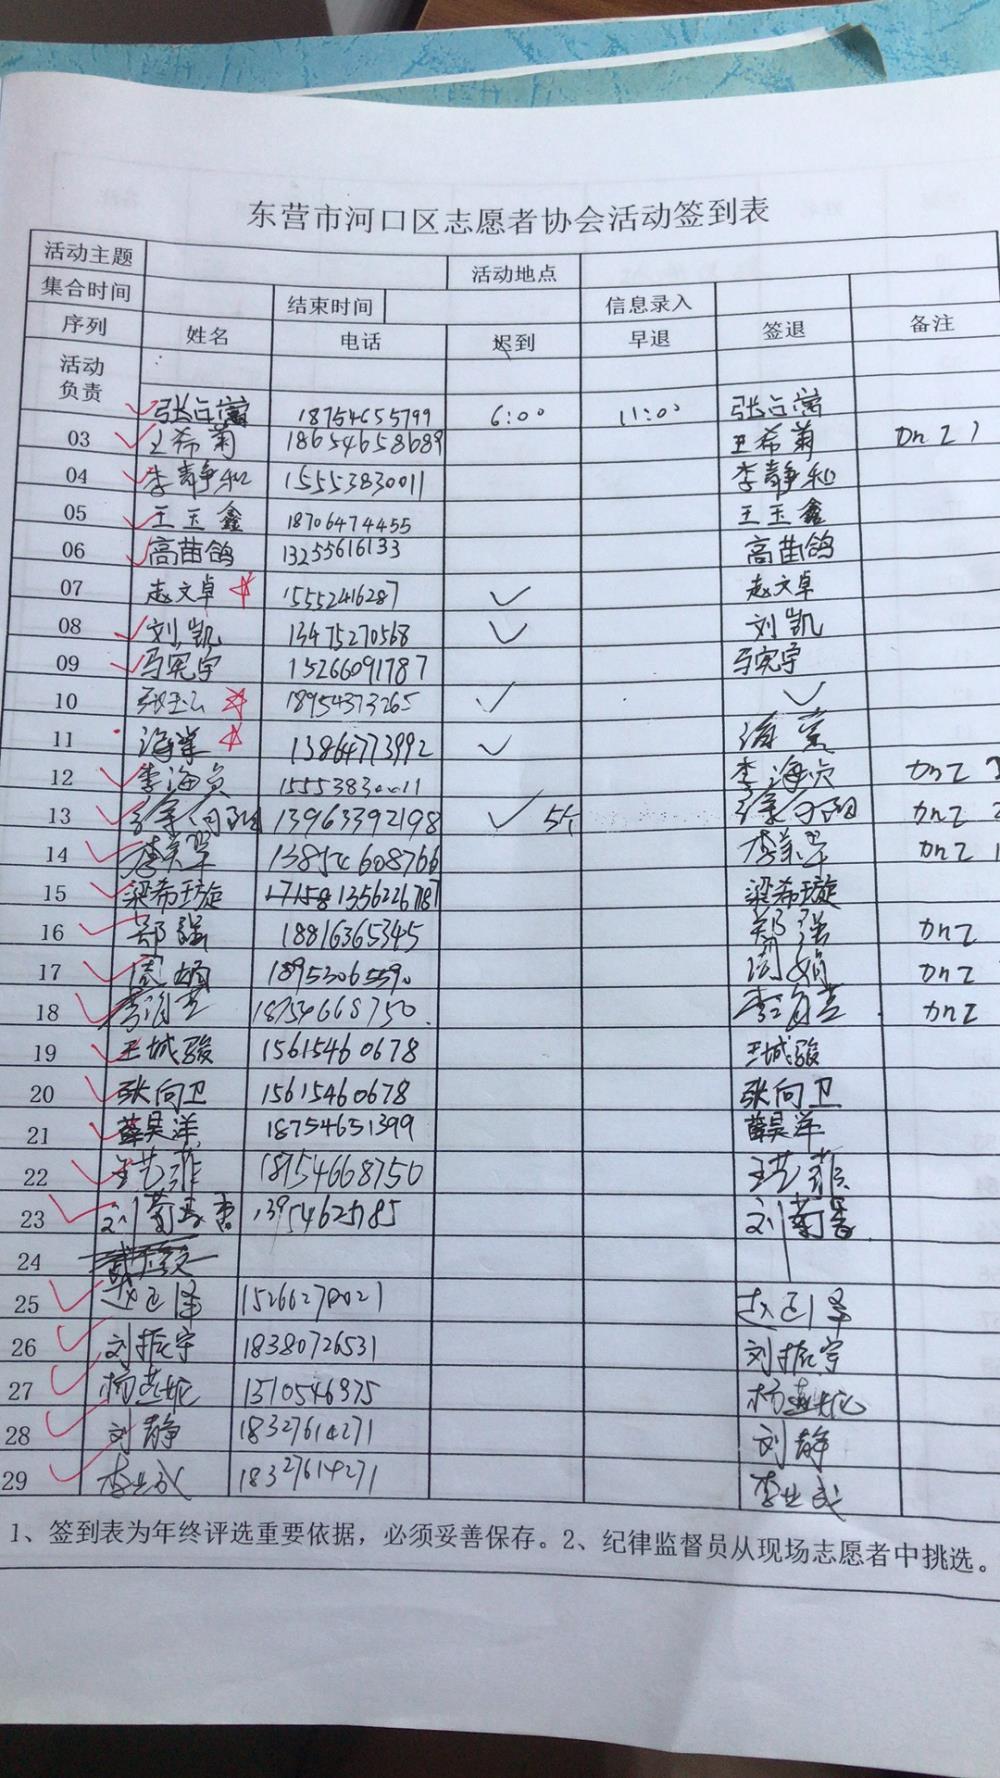 东营市河口区志愿者协会活动签到表
活动主题 活动地点
集合时间 结束时间 信息录入
序列 姓名 电话 迟到 早退 签退 备注
活动负责
张占富 18754655799 6:00 11:00 张占富
03 王希菊 18654658689 王希菊
04 李静和 15553830011 李静和
05 王玉鑫 18706474455 王玉鑫
06 高苗鸽 13255616133 高苗鸽
07 赵文卓 15552416287 ✓ 赵文卓
08 刘凯 13475270568 ✓ 刘凯
09 马宪宇 15266091787 马宪宇
10 18954373265 ✓ ✓
11 海棠 13864773992 ✓ 海棠
12 李海贞 15553830011 李海贞 加2
13 13963392198 ✓ 加2
14 李美翠 李美翠 加2
15 梁希璇 梁希璇
16 郑强 18816365345 郑强 加2
17 周娟 18953065590 周娟 加2
18 18754668750 加2
19 王城骏 15615460678 王城骏
20 张向卫 15615460678 张向卫
21 薛昊洋 18754651399 薛昊洋
22 王艺菲 18754668750 王艺菲
23 刘菊香 刘菊香
24
25 15266270021
26 刘振宇 18380726531 刘振宇
27 杨燕妮 1510546975 杨燕妮
28 刘静 18327614271 刘静
29 李业成 18327614271 李业成
1、签到表为年终评选重要依据，必须妥善保存。2、纪律监督员从现场志愿者中挑选。